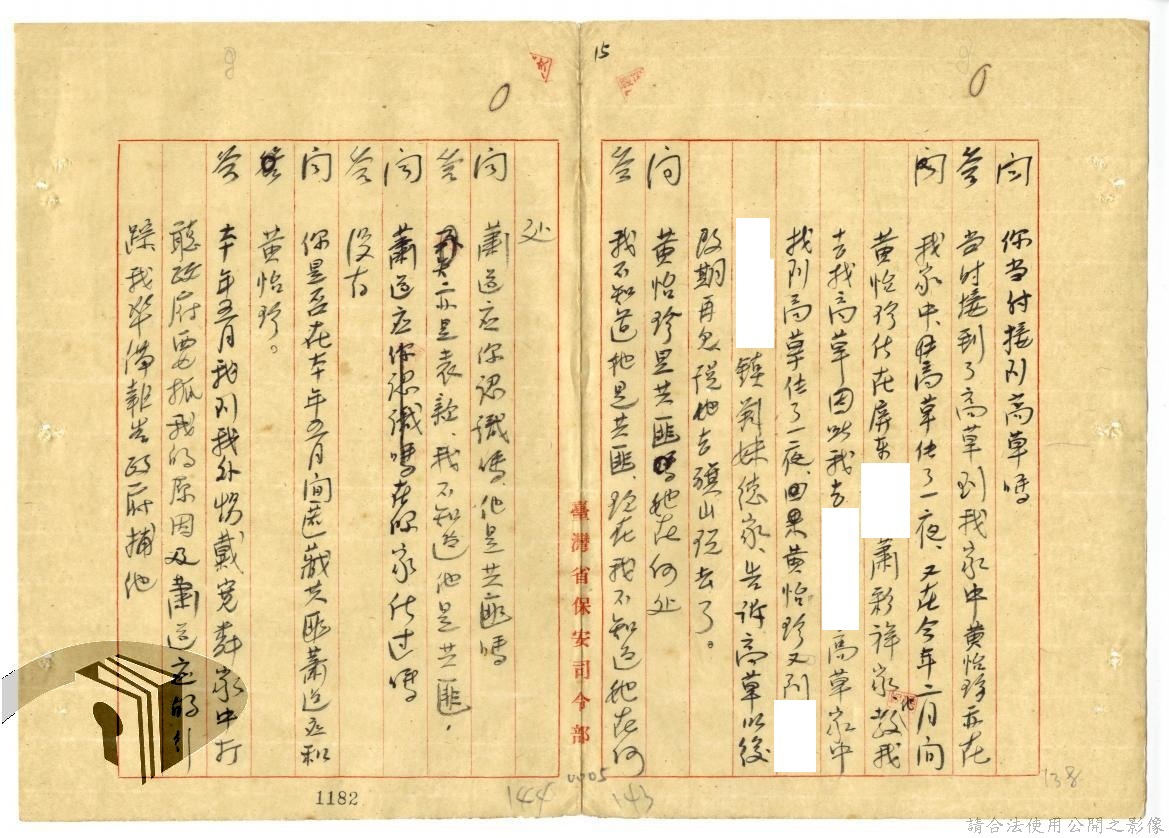 15
問 你當时接到高草嗎
答 当时接到了高草到我家中黄怡珍亦在
我家中,高草住了一夜、又在今年二月間
黄怡珍住在屏东 蕭彩祥家他教我
去找高草因此我去 高草家中
找到高草住了一夜、回果黄怡珍又到
鎮 妹德家、告訴高草以後
改期再見說他去旗山玩去了。
問 黄怡珍是共匪她在何处
答 我不知道她是共匪、現在我不知道她在何
处
問 蕭道应你認識嗎、他是共匪嗎
答 亦是表親、我不知道他是共匪.
問 蕭道应你認識嗎在你家住过嗎
答 没有
問 你是否在本年五月間匿藏共匪蕭道应和
黄怡珍。
答 本年五月我到我外甥戴寛 家中打
聽政府要抓我的原因及蕭道应的引
踪我準備報告政府捕他
臺灣省保安司令部
0005
1182
144
143
138
請合法使用公開之影像